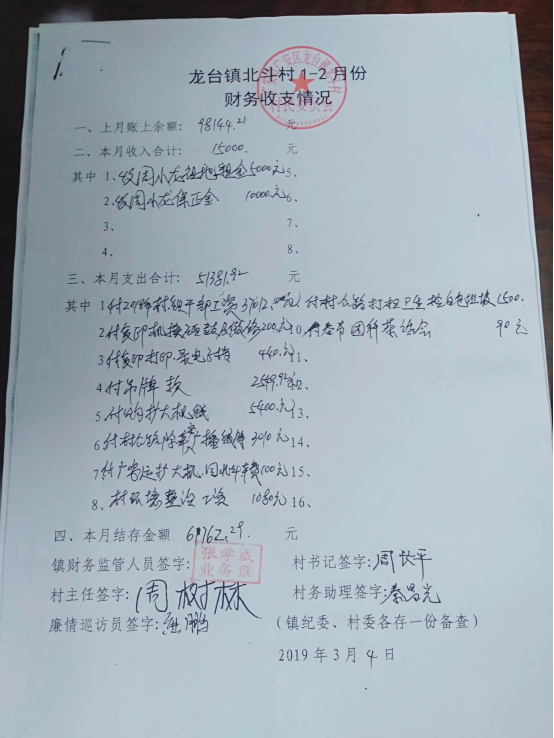 龙台镇北斗村1-2月份
财务收支情况
一、上月账上余额: 98144.21 元
二、本月收入合计: 15000. 元
其中 1、收周小龙租地租金5000元 5、
2、收周小龙保证金 10000元 6、
3、 7、
4、 8、
三、本月支出合计: 51381.92 元
其中 1付2018年村组干部工资 付村公路打扫卫生 1500.
2付复印机换硒鼓及维修200元 10、付春节团拜茶话会 90元
3付复印打印 440元 11、
4付吊牌款 2549.92元 12、
5付购扩大机线 5400元 13、
6付村公路除草 广播线等 3010元 14、
7付广安运扩大机 车费100元 15、
8、村环境整治工资 1080元 16、
四、本月结存金额 61762.29 元
镇财务监管人员签字: 张学成
业务章
村书记签字: 周长平
村主任签字: 周树林 村务助理签字: 秦昌光
廉情巡访员签字:
(镇纪委、村委各存一份备查)
2019年3月4日